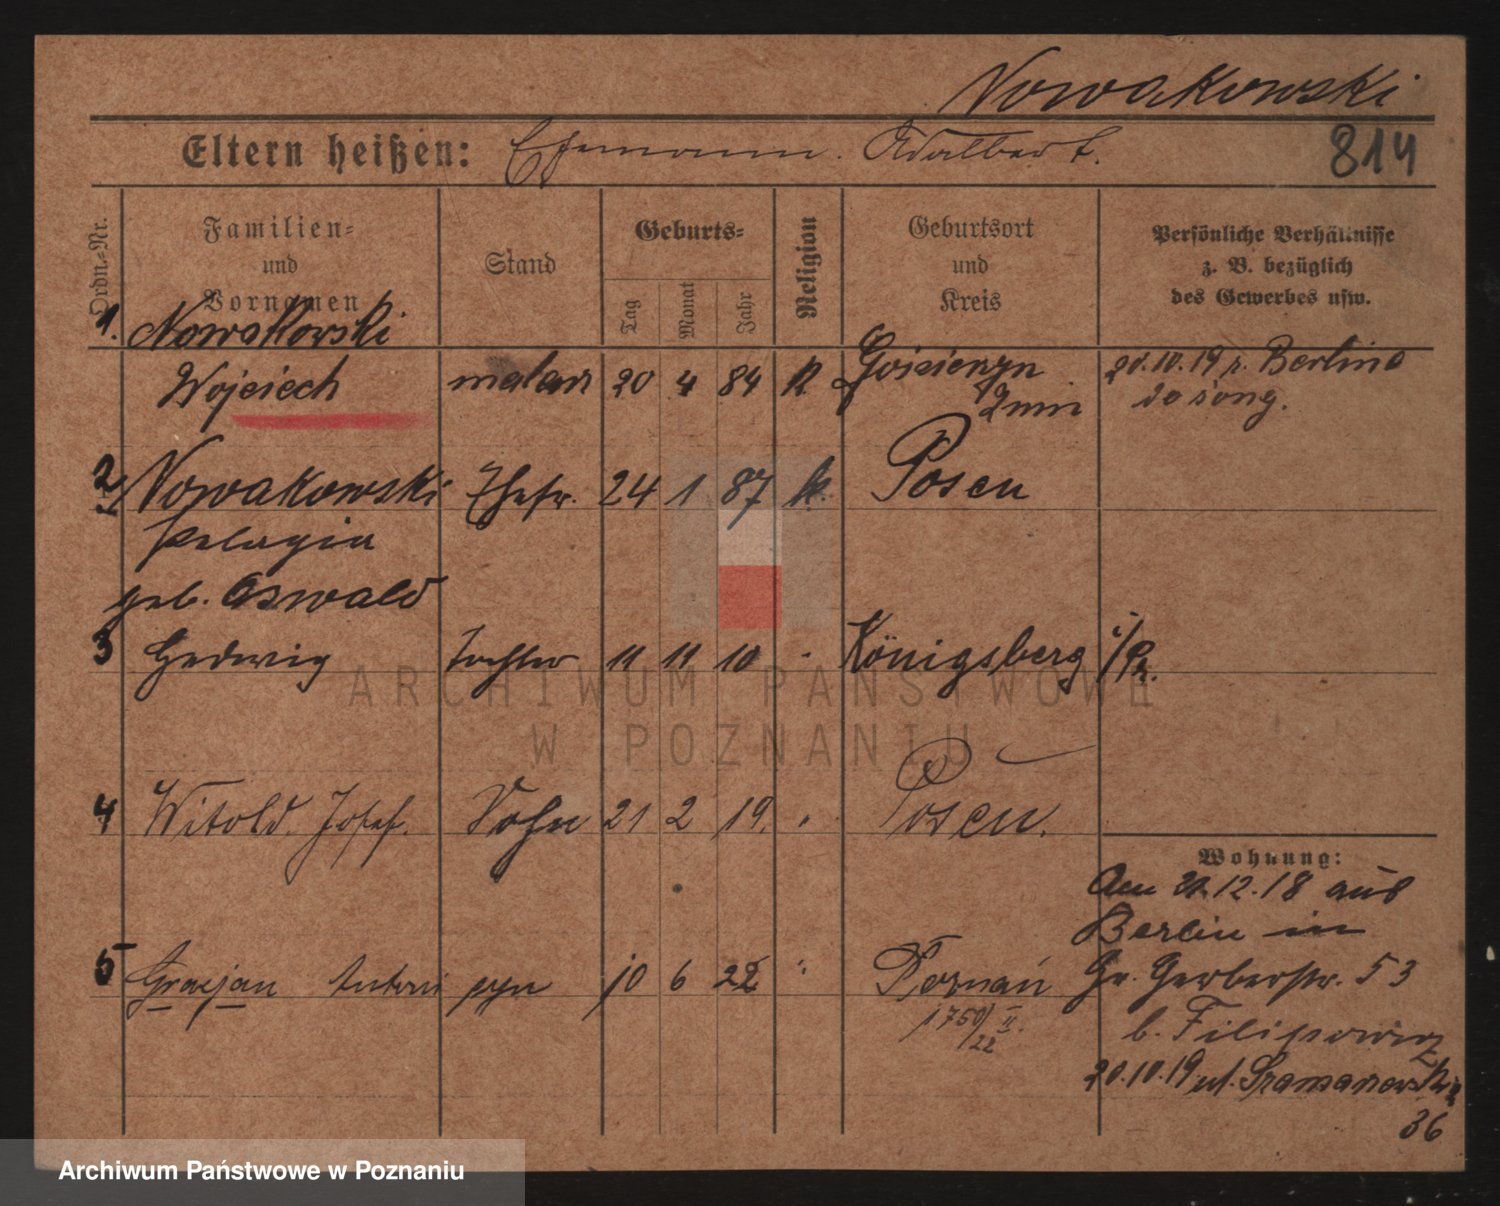 Nowakowski
Eltern heißen: Ehemann. Adalbert.
814
Ordn.-Nr.
Familien-
und
Vornamen
Stand
Geburts-
Tag
Monat
Jahr
Religion
Geburtsort
und
Kreis
Persönliche Verhältnisse
z. B. bezüglich
des Gewerbes usw.
1. Nowakowski
Wojciech malarz 20 4 84 k Gościeszyn
Żnin
20.10.19 z Berlina
do song.
2 Nowakowski Ehefr. 24 1 87 k. Posen
Pelagia
geb. Oswald
3 Hedwig Tochter 11 11 10 Königsberg i/Pr.
4 Witold Josef. Sohn 21 2 19. Posen.
5 Gracjan Antoni syn 10 6 22 Poznań
1750/II.
22
Wohnung:
Am 21.12.18 aus
Berlin in
Gr. Gerberstr. 53
b. Filipowicz
20.10.19 ul. Szamarzewskiego
36
ARCHIWUM PAŃSTWOWE
W POZNANIU
Archiwum Państwowe w Poznaniu